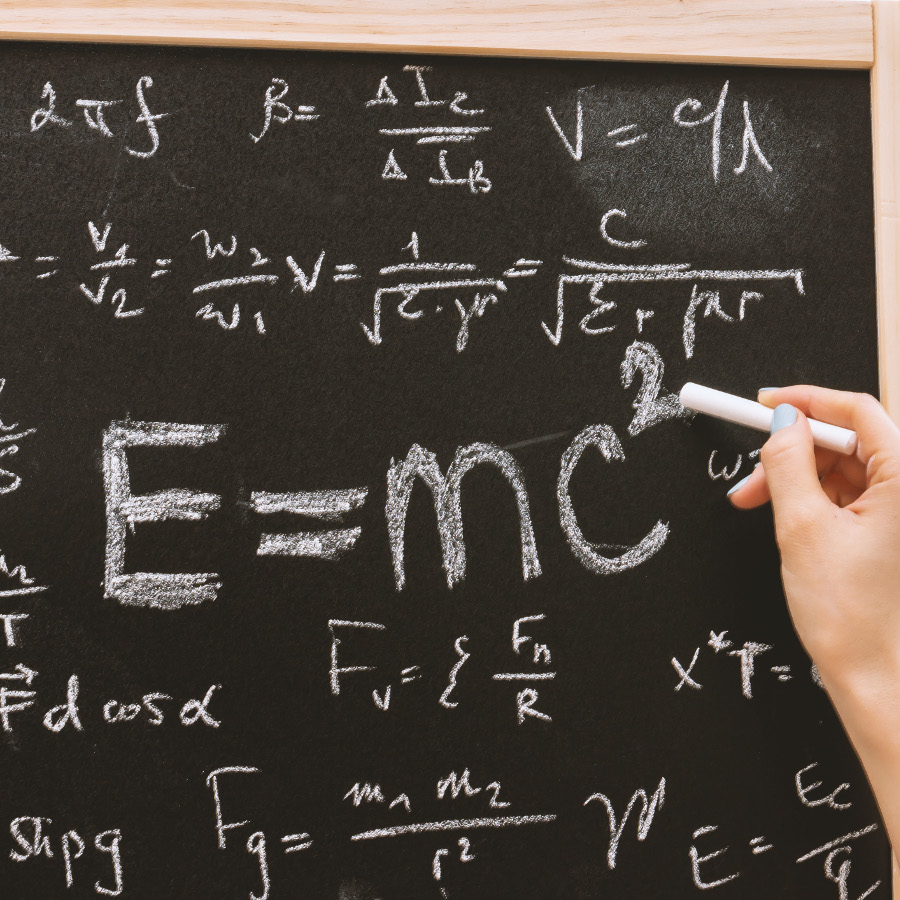 2πf β= ΔI_c/ΔI_B V = c/λ
= v₁/v₂ = w₂/w₁ V = 1/√(ε·μ) = c/√(ε_r μ_r)
E=mc²
ω=
F_v = ξ F_n/R x*T=
F⃗ d cos α
F_g = m₁ m₂/r² E = E_c/q
shρg